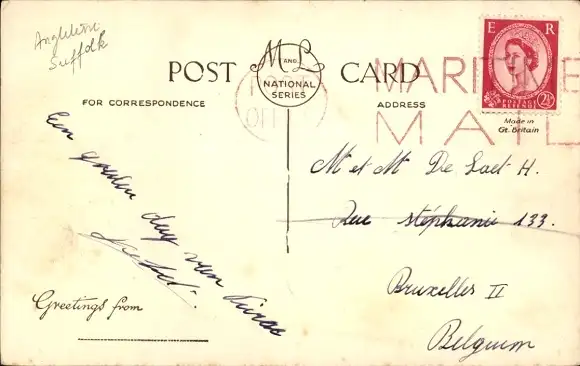 Angleterre
Suffolk
POST CARD
M AND L
NATIONAL
SERIES
FOR CORRESPONDENCE
ADDRESS
E R
POSTAGE
REVENUE
2½
Made in
Gt. Britain
POST
OFF
MARITIME
MAIL
Een goeden dag van
Mr et Mr De Laet H.
Rue Stéphanie 133.
Bruxelles II
Belguim
Greetings from